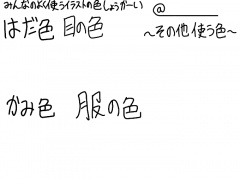 みんなのよく使うイラストの色しょうかーい
@
はだ色 目の色
〜その他使う色〜
かみ色 服の色